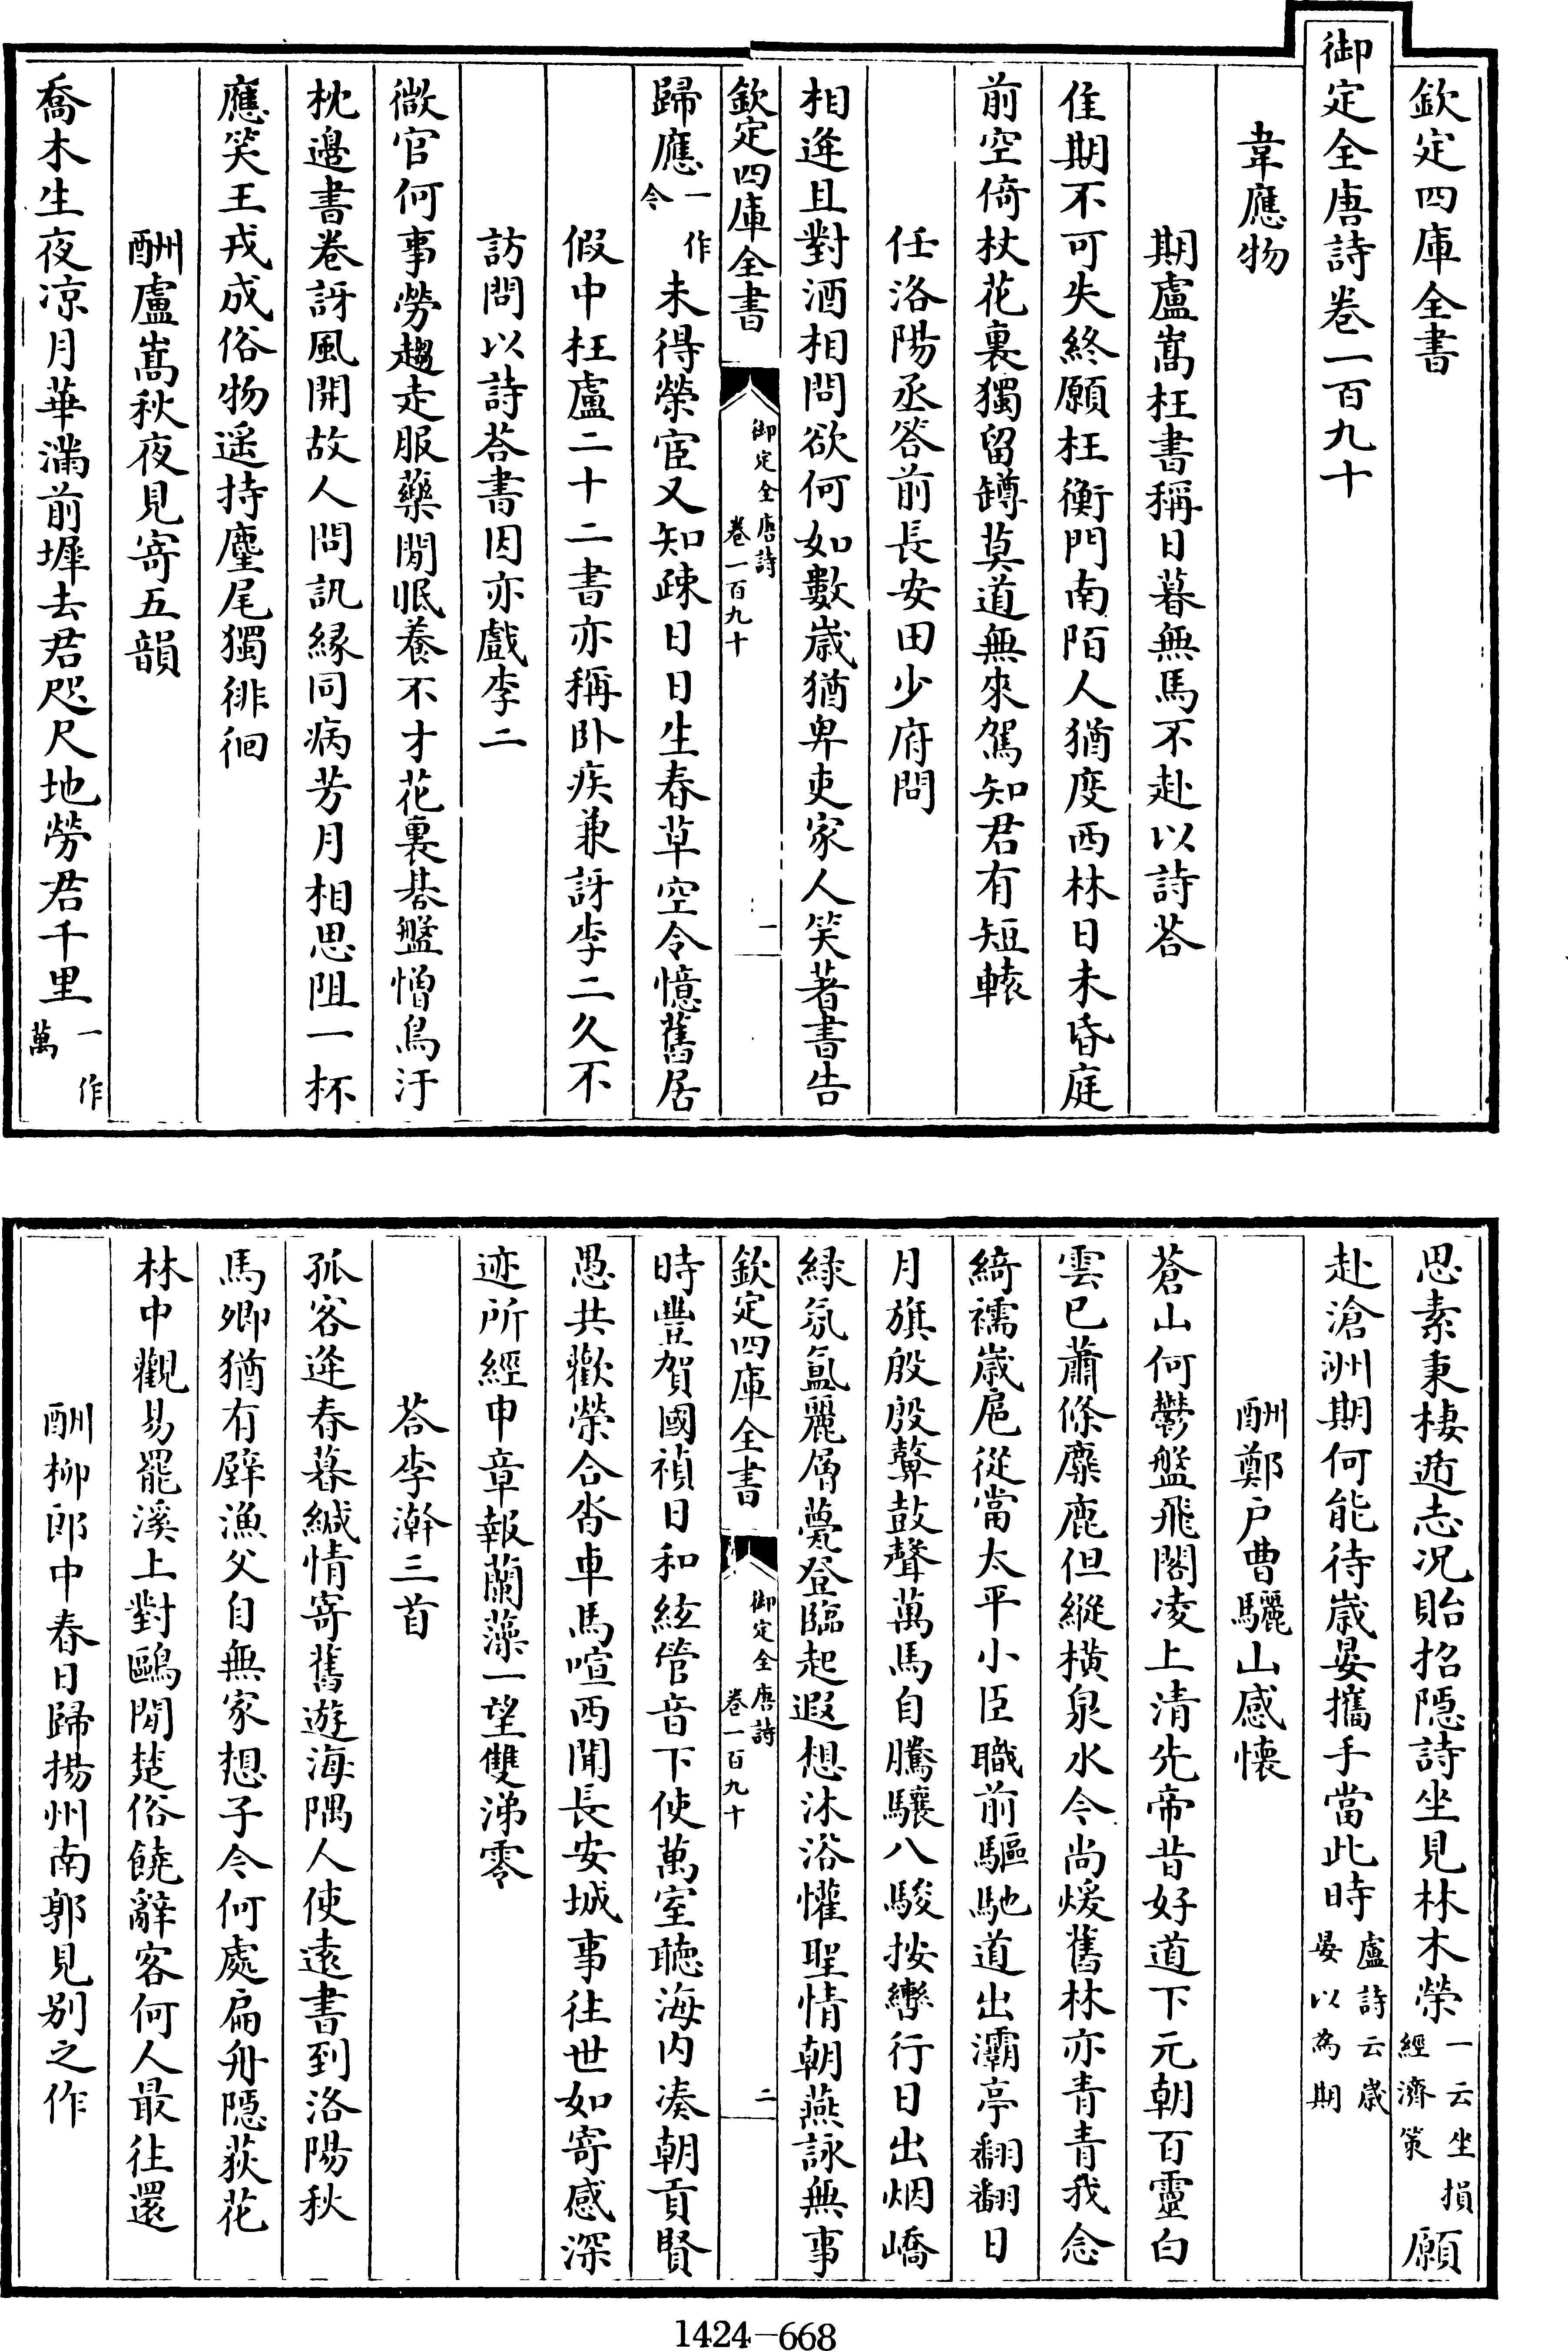 欽定四庫全書
御定全唐詩卷一百九十
韋應物
期盧嵩枉書稱日暮無馬不赴以詩荅
佳期不可失終願枉衡門南陌人猶度西林日未昏庭
前空倚杖花裏獨留罇莫道無來駕知君有短轅
任洛陽丞答前長安田少府問
相逄且對酒相問欲何如數嵗猶卑吏家人笑著書告
欽定四庫全書
御定全唐詩
卷一百九十
一
歸應一作令未得榮宦又知疎日日生春草空令憶舊居
假中枉盧二十二書亦稱卧疾兼訝李二久不
訪問以詩荅書因亦戲李二
微官何事勞趨走服藥閒眠養不才花裏棊盤憎鳥汙
枕邉書卷訝風開故人問訊縁同病芳月相思阻一杯
應笑王戎成俗物遥持麈尾獨徘徊
酬盧嵩秋夜見寄五韻
喬木生夜凉月華滿前墀去君咫尺地勞君千里一作萬
思素秉棲遁志况貽招隠詩坐見林木榮一云坐損經濟策願
赴滄洲期何能待嵗晏攜手當此時盧詩云嵗晏以為期
酬鄭户曹驪山感懷
蒼山何鬱盤飛閣凌上清先帝昔好道下元朝百靈白
雲已蕭條麋鹿但縱横泉水今尚煖舊林亦青青我念
綺襦嵗扈從當太平小臣職前驅馳道出灞亭翻翻日
月旗殷殷鼙鼓聲萬馬自騰驤八駿按轡行日出烟嶠
緑氛氲麗層甍登臨起遐想沐浴懽聖情朝燕詠無事
欽定四庫全書
御定全唐詩
卷一百九十
二
時豐賀國禎日和絃管音下使萬室聴海内凑朝貢賢
愚共歡榮合沓車馬喧西聞長安城事往世如寄感深
迹所經申章報蘭藻一望雙涕零
荅李澣三首
孤客逄春暮緘情寄舊遊海隅人使逺書到洛陽秋
馬卿猶有壁漁父自無家想子今何處扁舟隠荻花
林中觀易罷溪上對鷗閒楚俗饒辭客何人最往還
酬柳郎中春日歸揚州南郭見别之作
1424—668